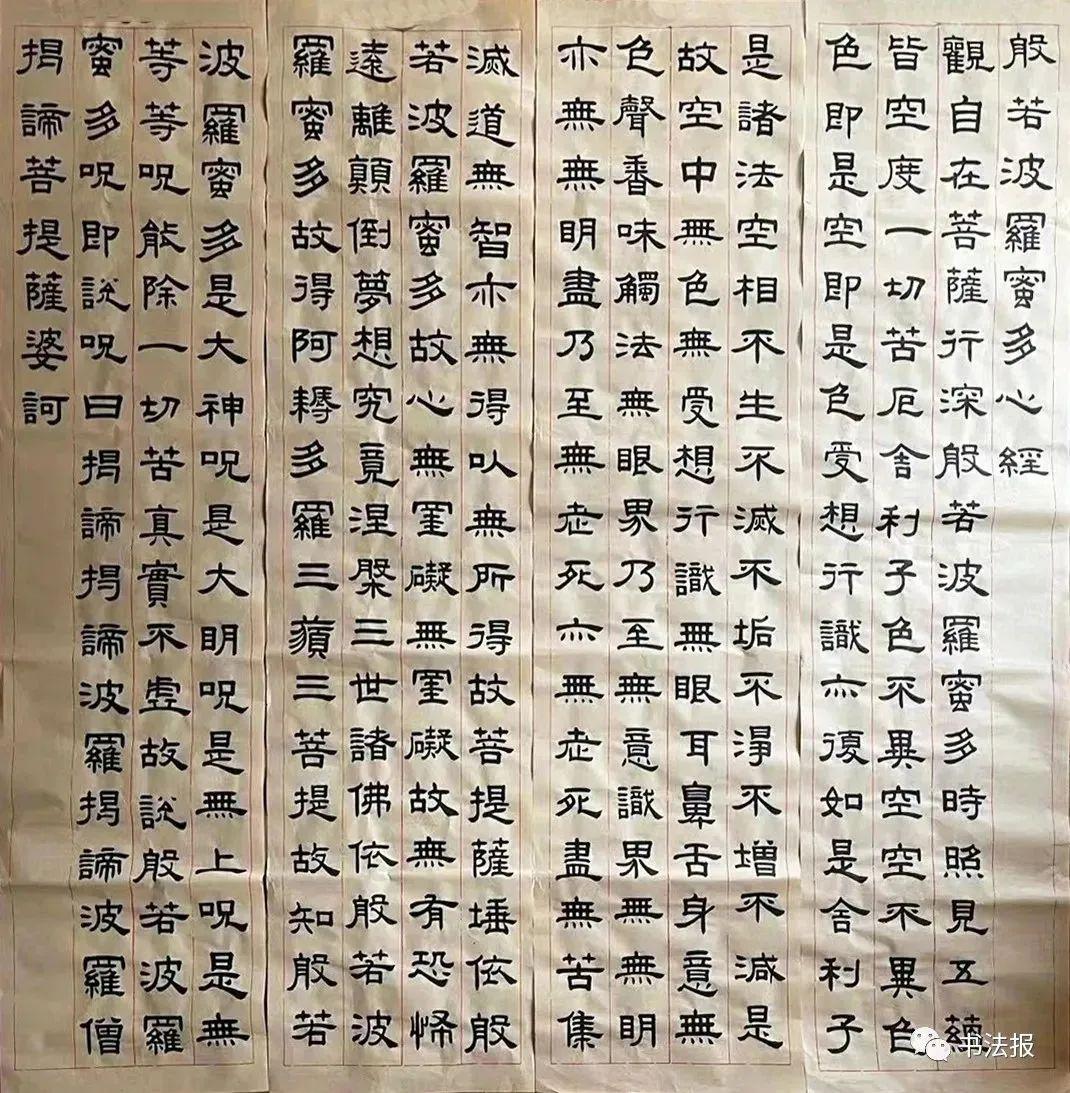 般若波羅蜜多心經
觀自在菩薩行深般若波羅蜜多時照見五蘊
皆空度一切苦厄舍利子色不異空空不異色
色即是空即是色受想行識亦復如是舍利子
是諸法空相不生不滅不垢不淨不增不減是
故空中無色無受想行識無眼耳鼻舌身意無
色聲香味觸法無眼界乃至無意識界無無明
亦無無明盡乃至無老死亦無老死盡無苦集
滅道無智亦無得以無所得故菩提薩埵依般
若波羅蜜多故心無罣礙無罣礙故無有恐怖
遠離顛倒夢想究竟涅槃三世諸佛依般若波
羅蜜多故得阿耨多羅三藐三菩提故知般若
波羅蜜多是大神呪是大明呪是無上呪是無
等等呪能除一切苦真實不虛故說般若波羅
蜜多呪即說呪曰揭諦揭諦波羅揭諦波羅僧
揭諦菩提薩婆訶
书法报